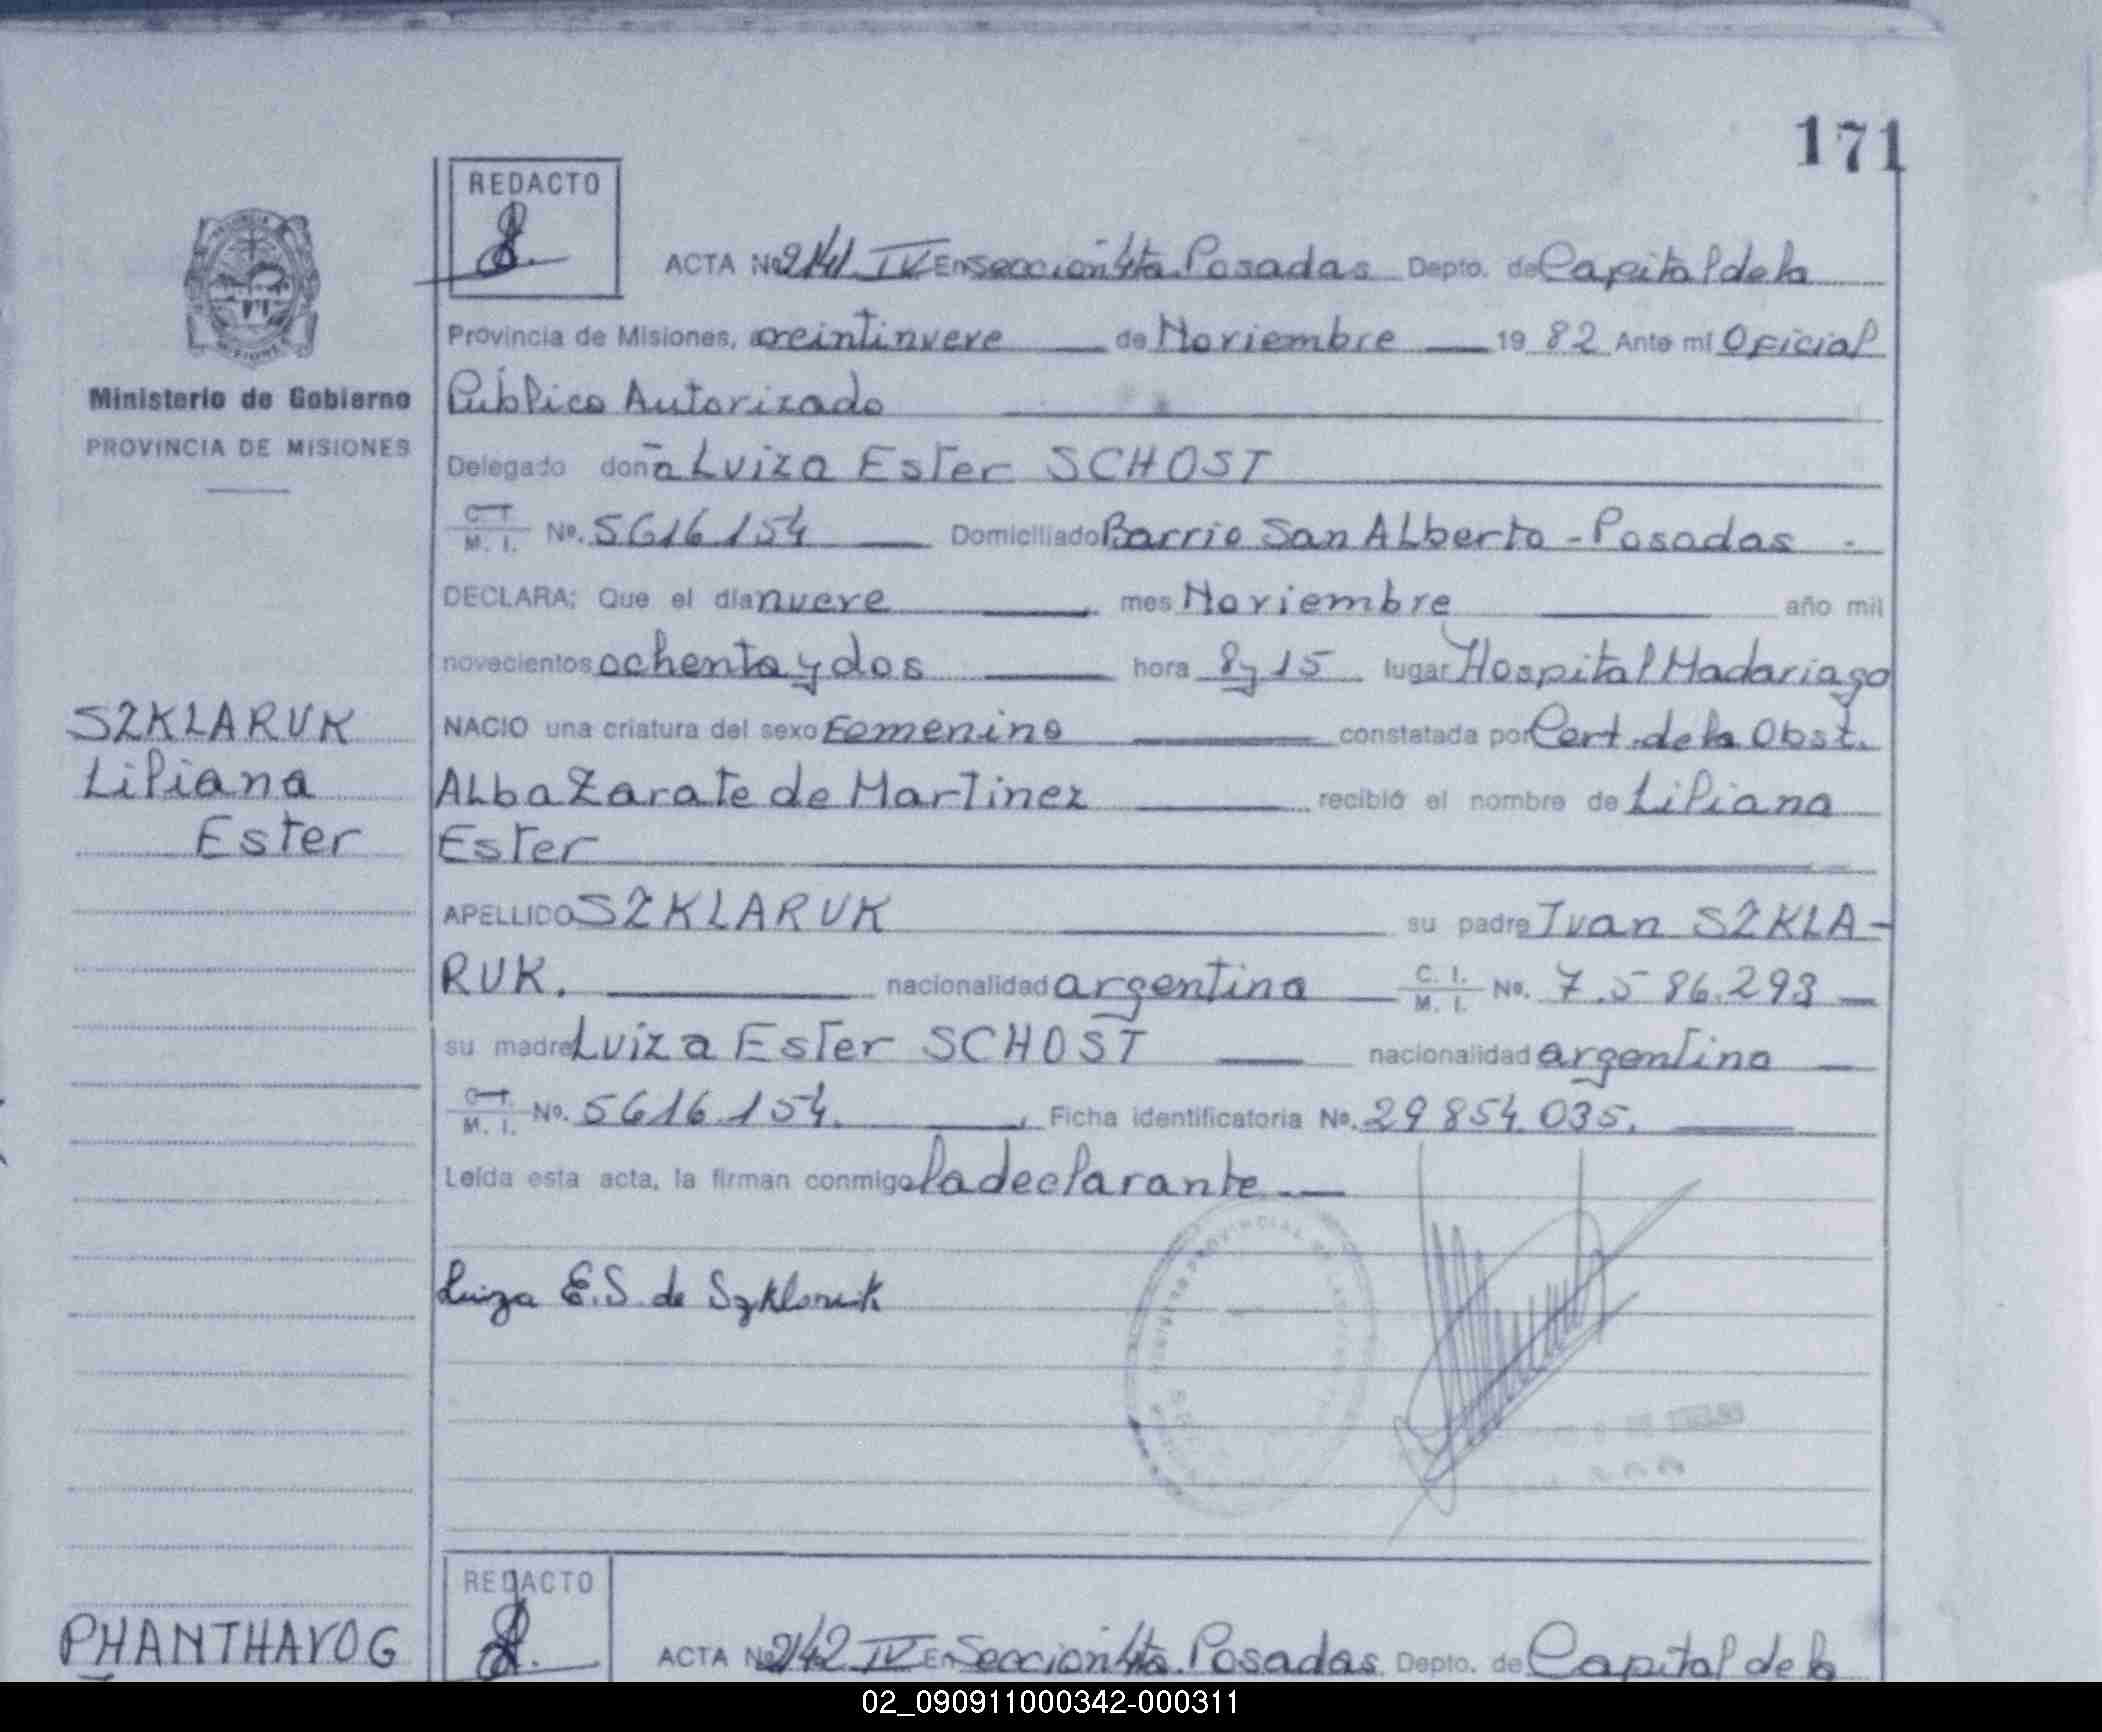 171
REDACTO
ACTA No 2141 IV En Seccion 4ta. Posadas Depto. de Capital de la
Provincia de Misiones, veintinueve de Noviembre 19 82 Ante mi Oficial
Ministerio de Gobierno
Público Autorizado
PROVINCIA DE MISIONES
Delegado doña Luiza Ester SCHOST
C. I. M. I. No. 5616154 Domiciliado Barrio San Alberto - Posadas -
DECLARA; Que el día nueve mes Noviembre año mil
novecientos ochenta y dos hora 8 y 15 lugar Hospital Madariaga
SZKLARUK
NACIO una criatura del sexo Femenino constatada por Cert. de la Obst.
Liliana
Alba Zarate de Martinez recibió el nombre de Liliana
Ester
Ester
APELLIDO SZKLARUK su padre Ivan SZKLA-
RUK. nacionalidad argentina C. I. M. I. No. 7.586.293
su madre Luiza Ester SCHOST nacionalidad argentina
C. I. M. I. No. 5616.154. Ficha identificatoria No. 29 854 035.
Leída esta acta, la firman conmigo la declarante
Luiza E.S. de Szklaruk
REDACTO
PHANTHAVOG
ACTA No 2142 IV En Seccion 4ta. Posadas Depto. de Capital de la
02_090911000342-000311